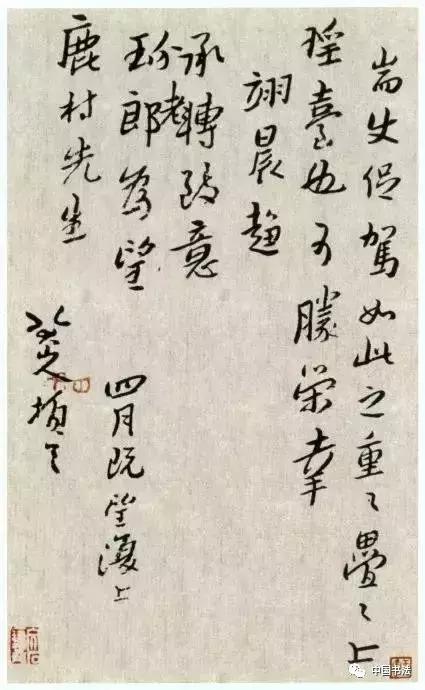 耑使促駕如此之重〻疊〻上
瑤臺也可勝榮幸
翊晨趨
承轉致意
玢老郎為望
鹿村先生
四月既望復上
八大山人頓首
中国书法